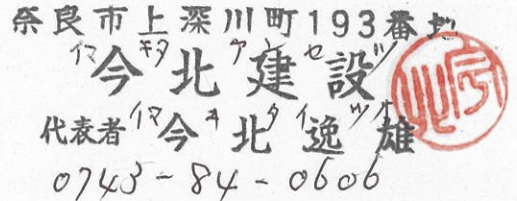 奈良市上深川町193番地
イマキタケンセツ
今北建設
イマキタイツオ
代表者 今北逸雄
0743-84-0606